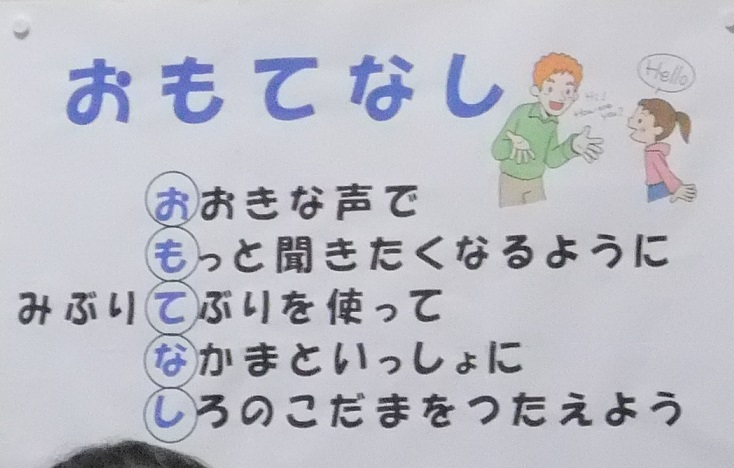 おもてなし
Hello
Hi!
How are you?
おおきな声で
もっと聞きたくなるように
みぶりてぶりを使って
なかまといっしょに
しろのこだまをつたえよう